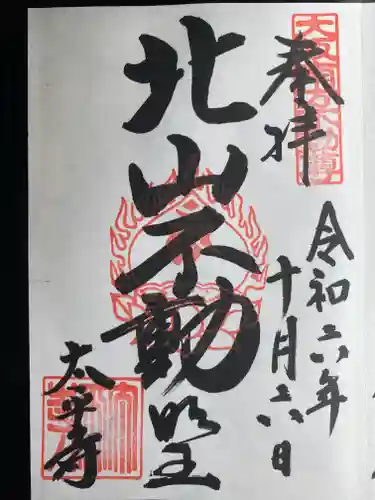 奉拝
令和六年
十月六日
北山不動堂
太平寺